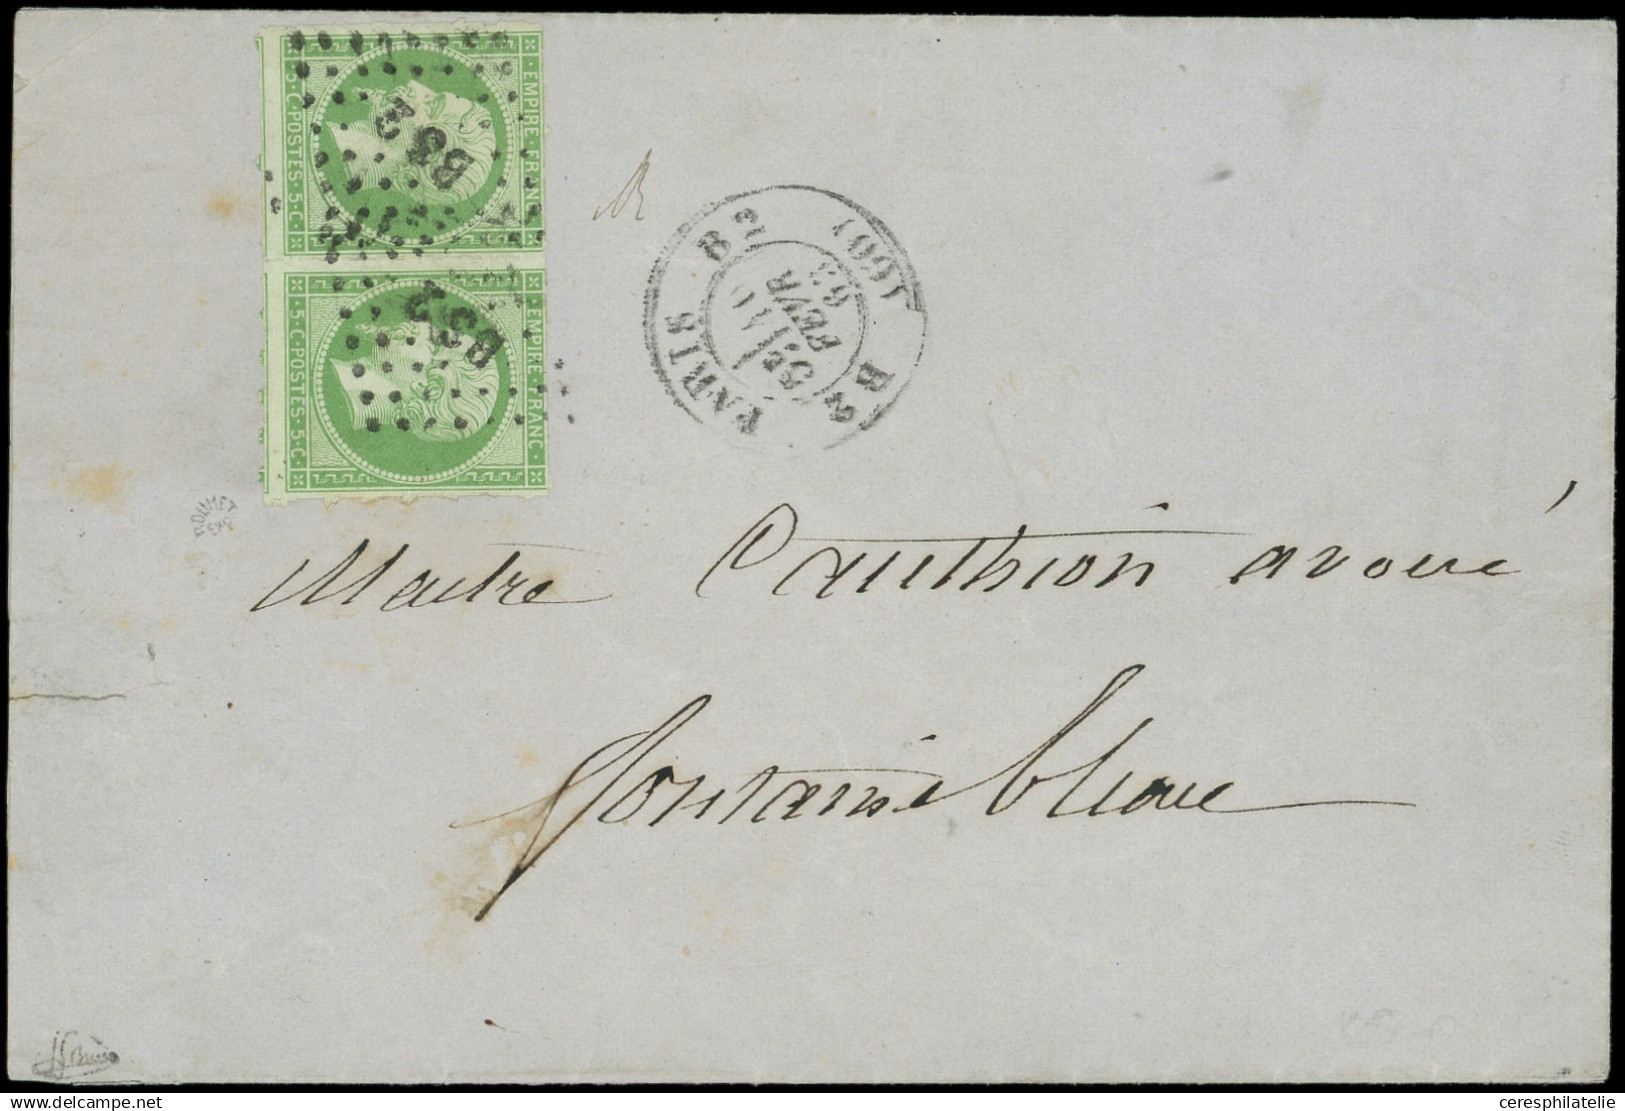 EMPIRE FRANC
5·C·POSTES·5·C
B32
EMPIRE·FRANC
5·C·POSTES·5·C
B32
PARIS B2 (60) B2
FEVR
63
ROUMET
EXP
Maitre Cauthion avoué
fontainebleau
www.delcampe.net
ceresphilatelie